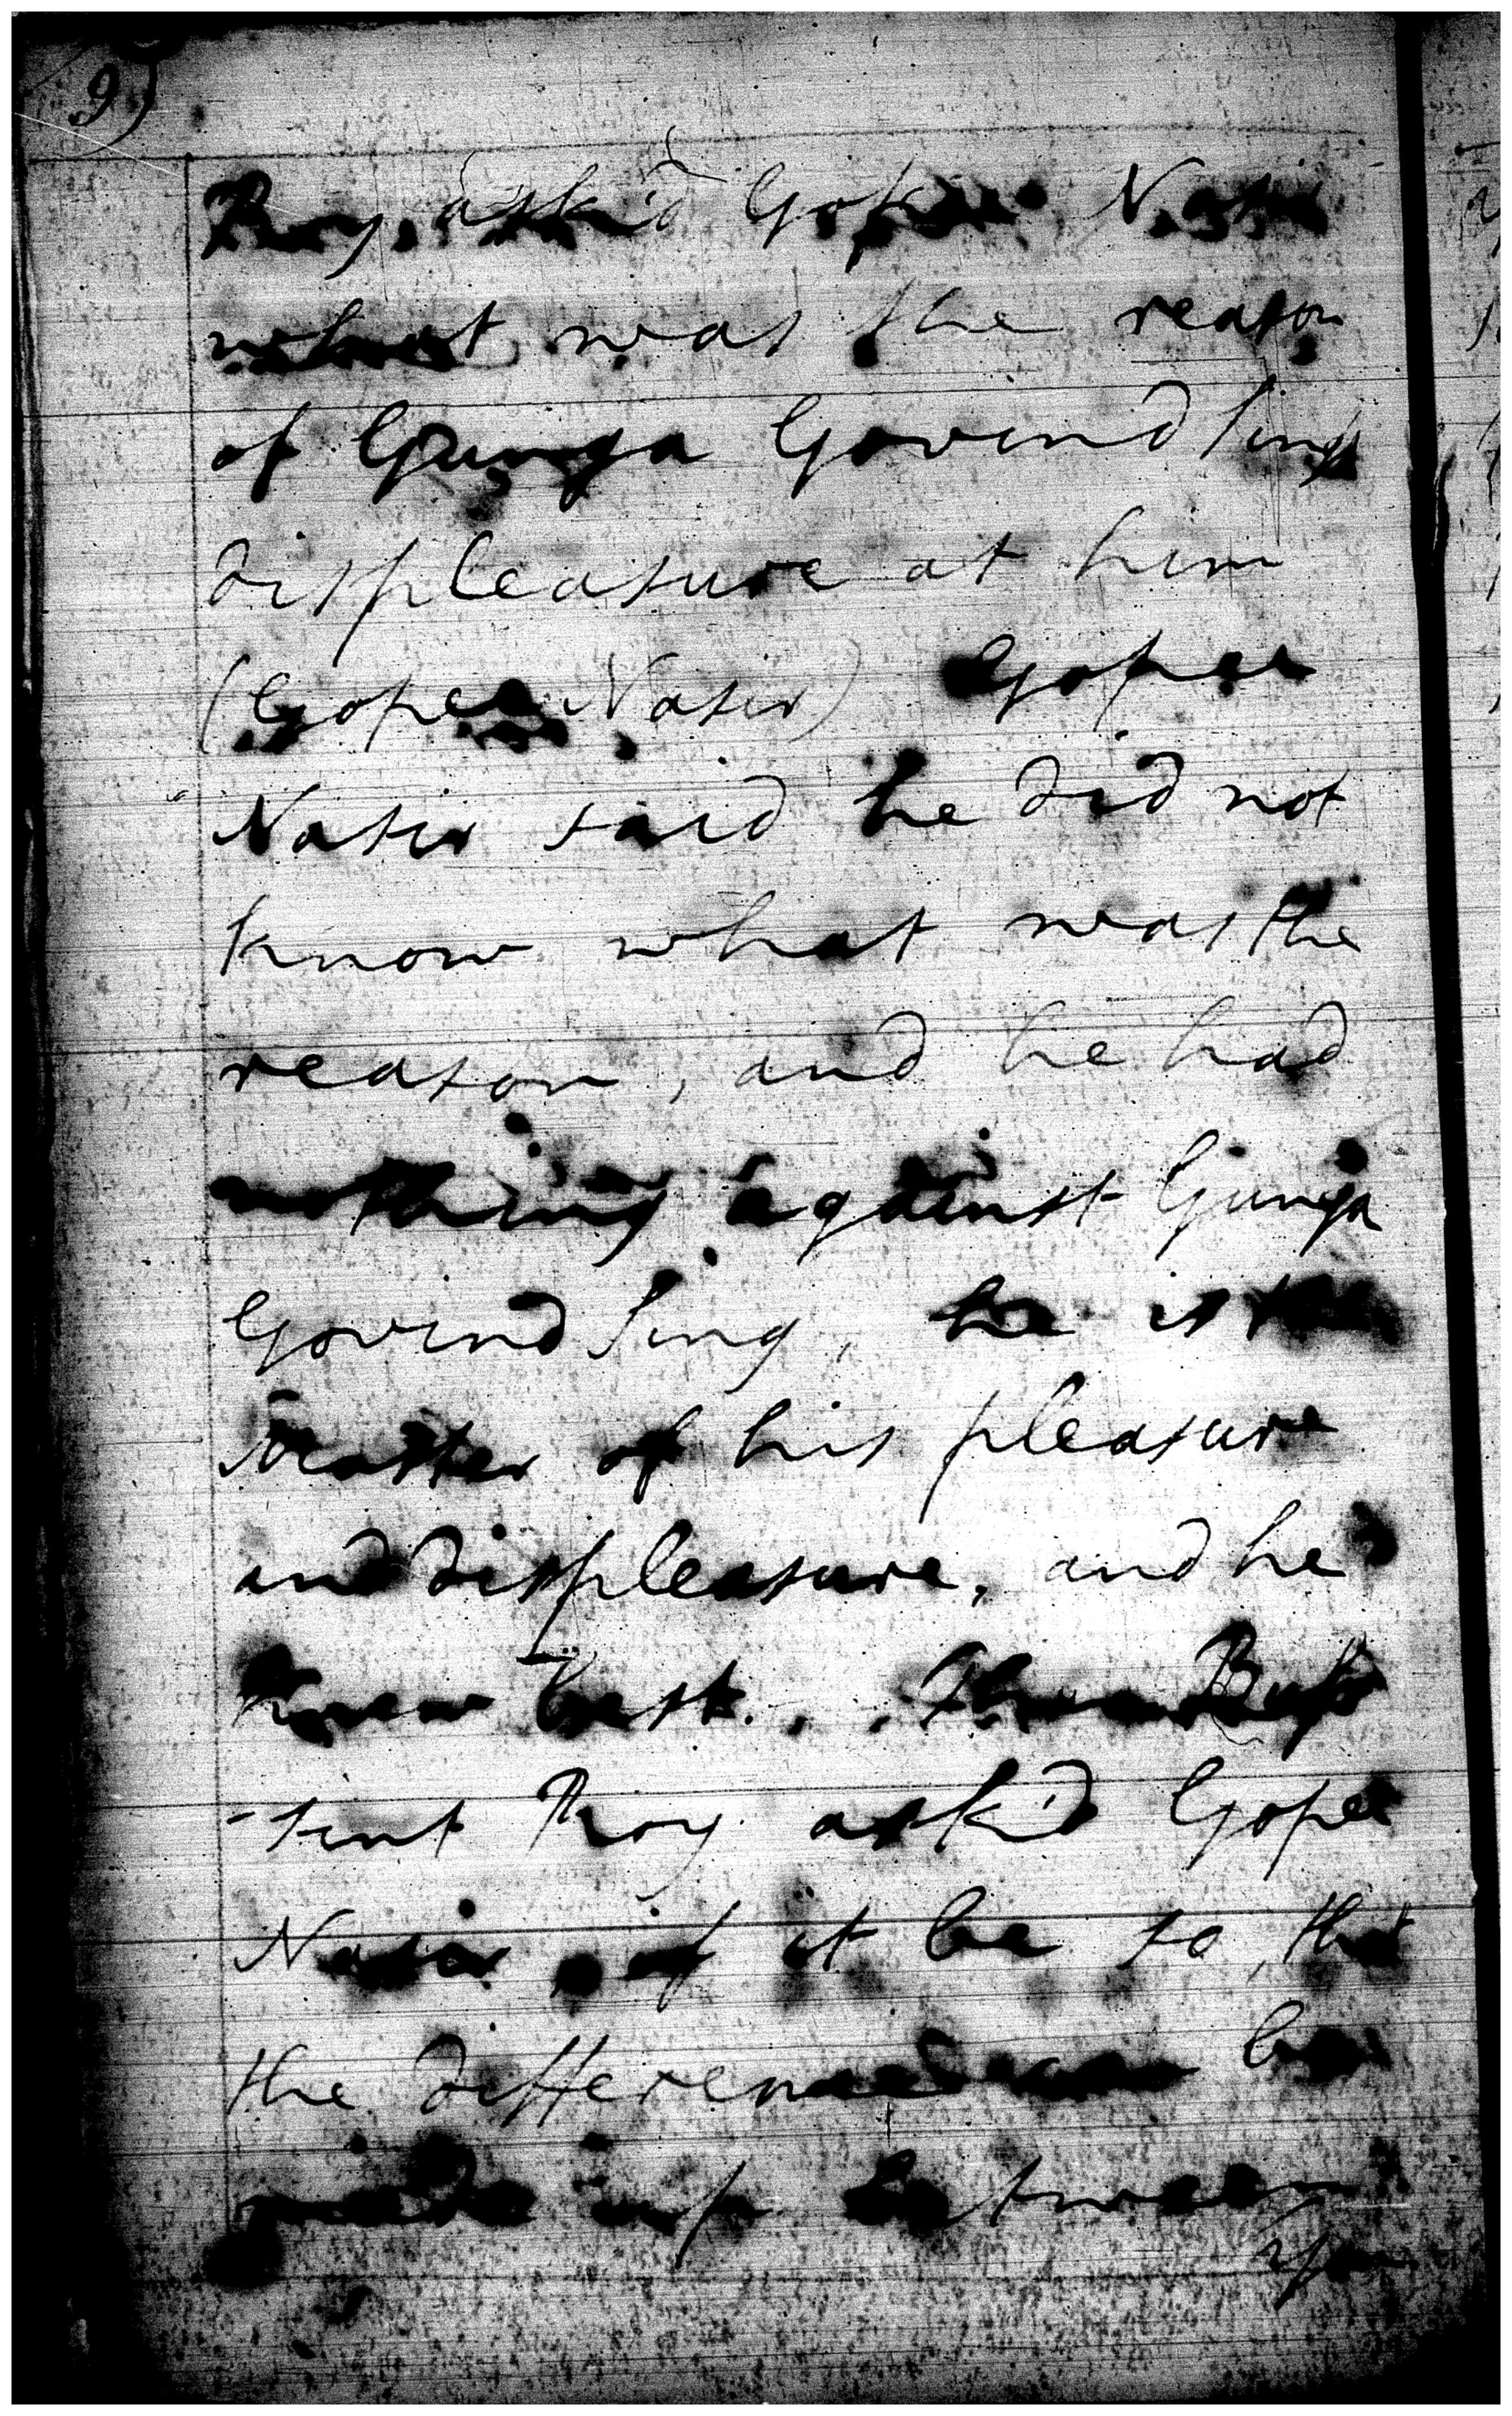 9)
Roy, ask'd Gopee Nasir
what was the reason
of Gunga Govind Sing
displeasure at him
(Gopee Nasir) Gopee
Nasir said he did not
know what was the
reason, and he had
nothing against Gunga
Govind Sing, he is the
Master of his pleasure
and displeasure, and he
knew best.
-sent Roy ask'd Gopee
Nasir, if it be so, that
the difference can be
made up between
you